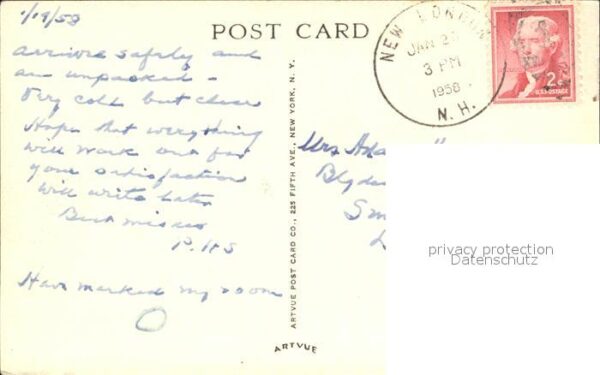 1/19/58
POST CARD
Arrived safely and
am unpacked -
Very cold but clear
Hope that everything
will work out for
your satisfaction
Will write later
Best
P. H S
Have marked my room
O
NEW LONDON
JAN 2
3 PM
1958
N. H.
2¢
U.S. POSTAGE
Mrs
ARTVUE POST CARD CO., 225 FIFTH AVE., NEW YORK, N. Y.
ARTVUE
privacy protection
Datenschutz